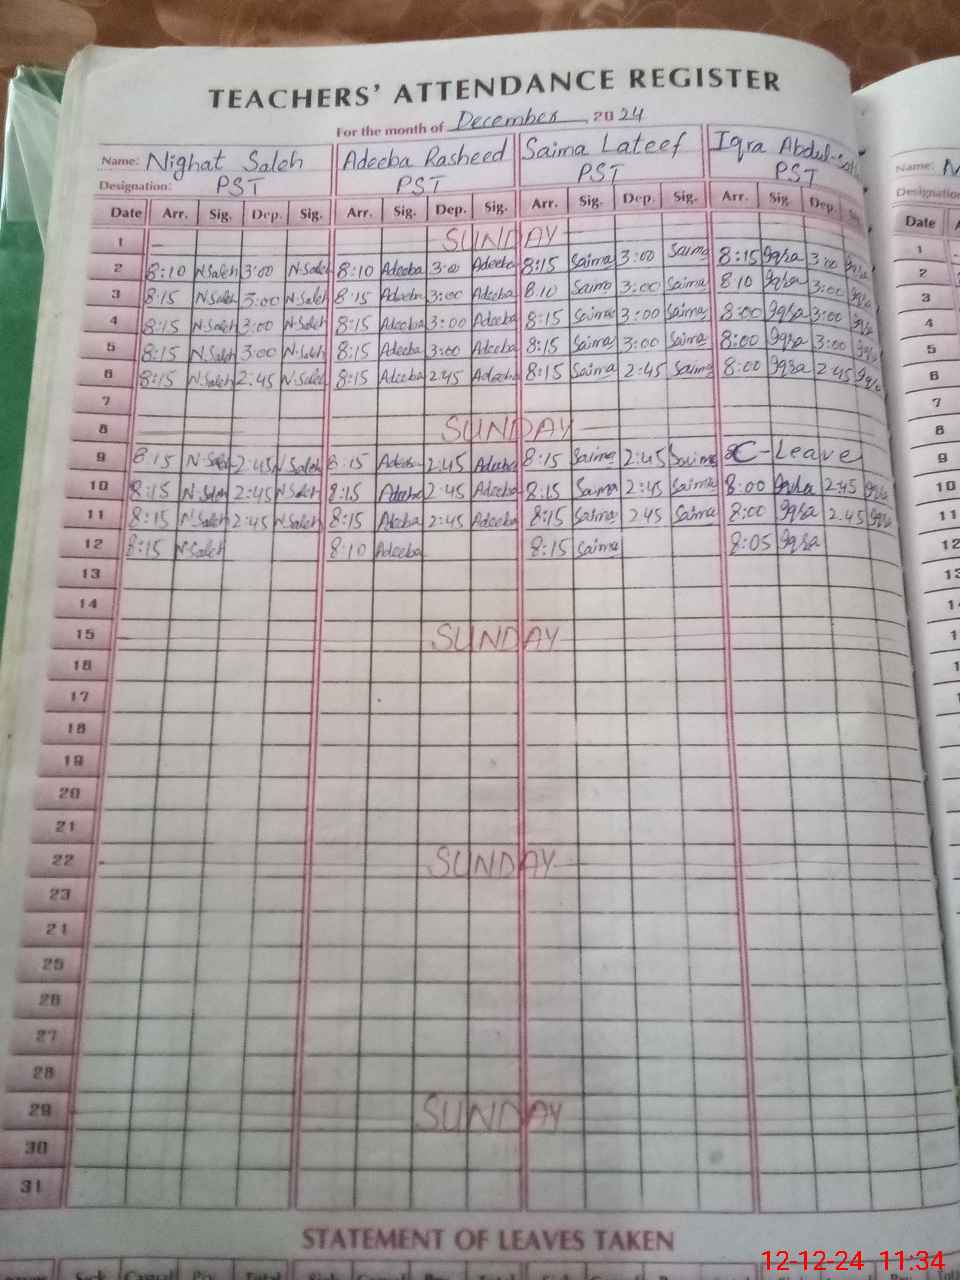 TEACHERS' ATTENDANCE REGISTER
For the month of December 2024
Name: Nighat Saleh Adeeba Rasheed Saima Lateef Iqra Abdul
Designation: PST PST PST PST
Date Arr. Sig. Dep. Sig. Arr. Sig. Dep. Sig. Arr. Sig. Dep. Sig. Arr. Sig. Dep. Date
1 SUNDAY 1
2 8:10 N.Saleh 3:00 N.Saleh 8:10 Adeeba 3:00 Adeeba 8:15 Saima 3:00 Saima 8:15 Iqra 3:00 Iqra 2
3 8:15 N.Saleh 3:00 N.Saleh 8:15 Adeeba 3:00 Adeeba 8:10 Saima 3:00 Saima 8:10 Iqra 3:00 Iqra 3
4 8:15 N.Saleh 3:00 N.Saleh 8:15 Adeeba 3:00 Adeeba 8:15 Saima 3:00 Saima 8:00 Iqra 3:00 Iqra 4
5 8:15 N.Saleh 3:00 N.Saleh 8:15 Adeeba 3:00 Adeeba 8:15 Saima 3:00 Saima 8:00 Iqra 3:00 Iqra 5
6 8:15 N.Saleh 2:45 N.Saleh 8:15 Adeeba 2:45 Adeeba 8:15 Saima 2:45 Saima 8:00 Iqra 2:45 Iqra 6
7 7
8 SUNDAY 8
9 8:15 N.Saleh 2:45 N.Saleh 8:15 Adeeba 2:45 Adeeba 8:15 Saima 2:45 Saima C-Leave 9
10 8:15 N.Saleh 2:45 N.Saleh 8:15 Adeeba 2:45 Adeeba 8:15 Saima 2:45 Saima 8:00 Iqra 2:45 Iqra 10
11 8:15 N.Saleh 2:45 N.Saleh 8:15 Adeeba 2:45 Adeeba 8:15 Saima 2:45 Saima 8:00 Iqra 2:45 Iqra 11
12 8:15 N.Saleh 8:10 Adeeba 8:15 Saima 8:05 Iqra 12
13
14
15 SUNDAY
16
17
18
19
20
21
22 SUNDAY
23
24
25
26
27
28
29 SUNDAY
30
31
STATEMENT OF LEAVES TAKEN
12-12-24 11:34